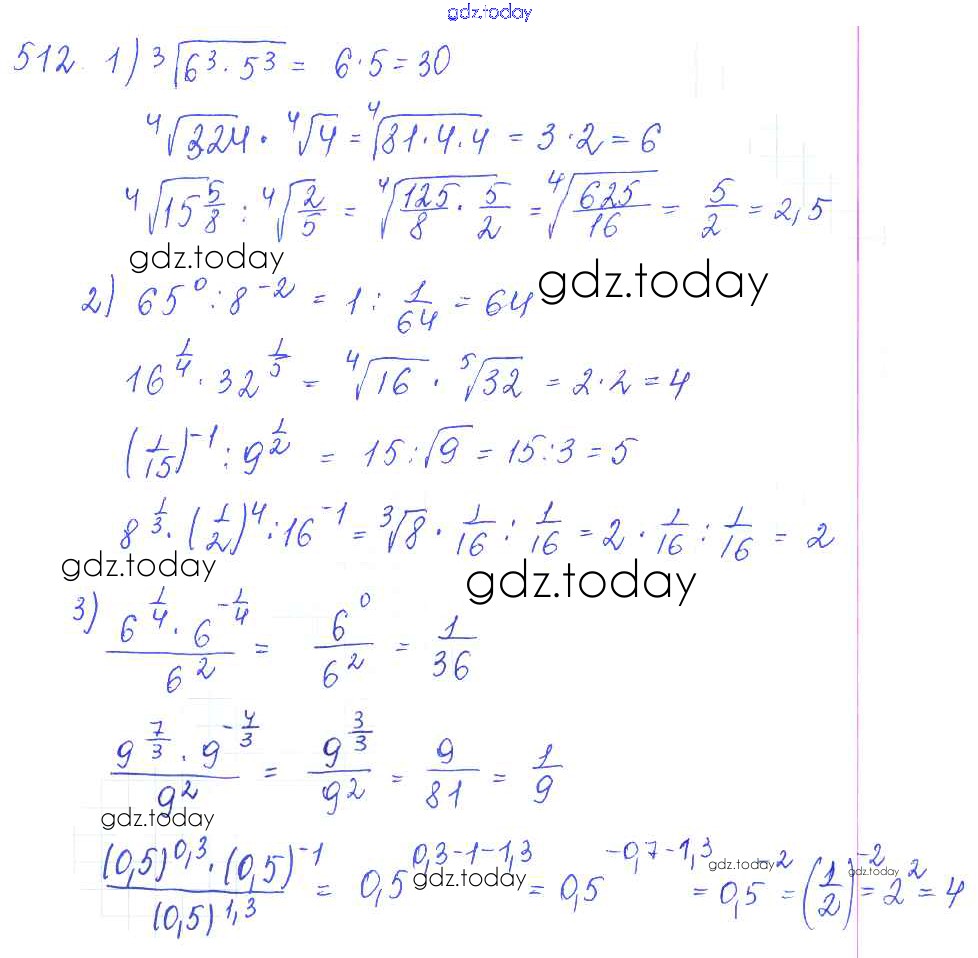 gdz.today
512. 1) ∛(6³·5³) = 6·5 = 30
⁴√324 · ⁴√4 = ⁴√(81·4·4) = 3·2 = 6
⁴√(15 5/8) : ⁴√(2/5) = ⁴√(125/8 · 5/2) = ⁴√(625/16) = 5/2 = 2,5
gdz.today
gdz.today
2) 65⁰ : 8⁻² = 1 : 1/64 = 64
16^(1/4) · 32^(1/5) = ⁴√16 · ⁵√32 = 2·2 = 4
(1/15)⁻¹ : 9^(1/2) = 15 : √9 = 15 : 3 = 5
8^(1/3) · (1/2)⁴ : 16⁻¹ = ³√8 · 1/16 : 1/16 = 2 · 1/16 : 1/16 = 2
gdz.today
gdz.today
3) (6^(1/4) · 6^(-1/4))/6² = 6⁰/6² = 1/36
(9^(7/3) · 9^(-4/3))/9² = 9^(3/3)/9² = 9/81 = 1/9
gdz.today
((0,5)^0,3 · (0,5)^-1)/(0,5)^1,3 = 0,5^(0,3-1-1,3) = 0,5^(-0,7-1,3) = 0,5^-2 = (1/2)^-2 = 2² = 4
gdz.today
gdz.today
gdz.today